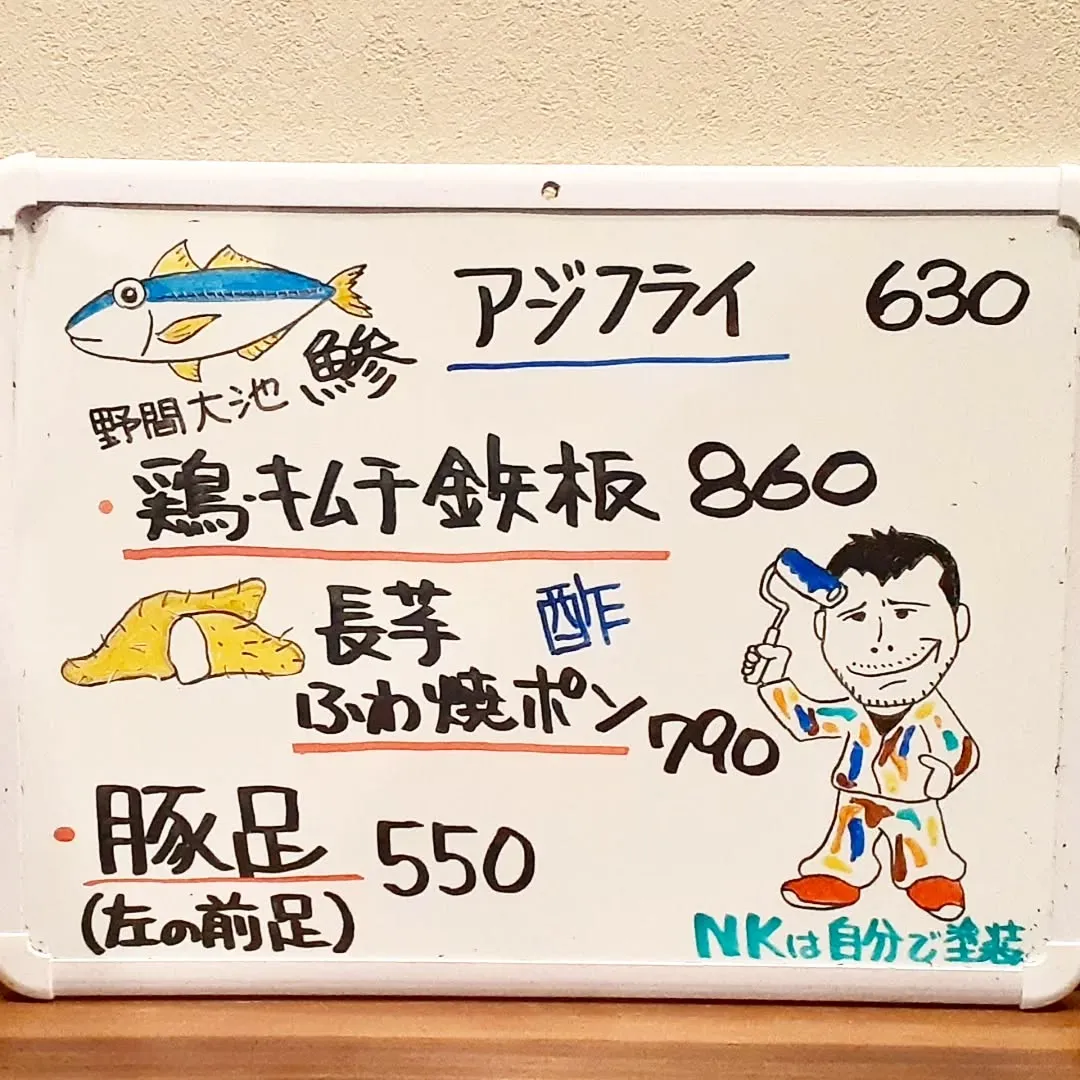 アジフライ 630
野間大池 鯵
・鶏キムチ鉄板 860
長芋 酢
ふわ焼ポン 790
・豚足 550
(左の前足)
NKは自分で塗装